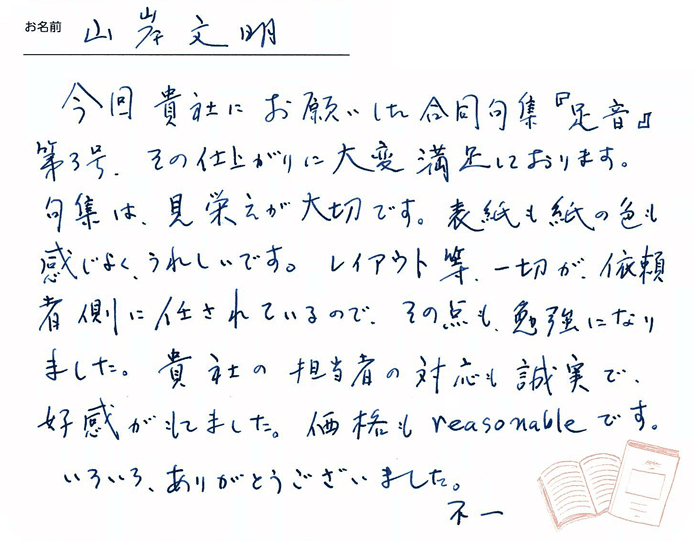 お名前 山岸文明
今回 貴社に お願いした 合同句集『足音』
第3号、その仕上がりに大変満足しております。
句集は、見栄えが大切です。表紙も紙の色も
感じよく、うれしいです。レイアウト等、一切が、依頼
者側に任されているので、その点も、勉強になり
ました。貴社の担当者の対応も誠実で、
好感がもてました。価格も reasonable です。
いろいろ、ありがとうございました。
不一